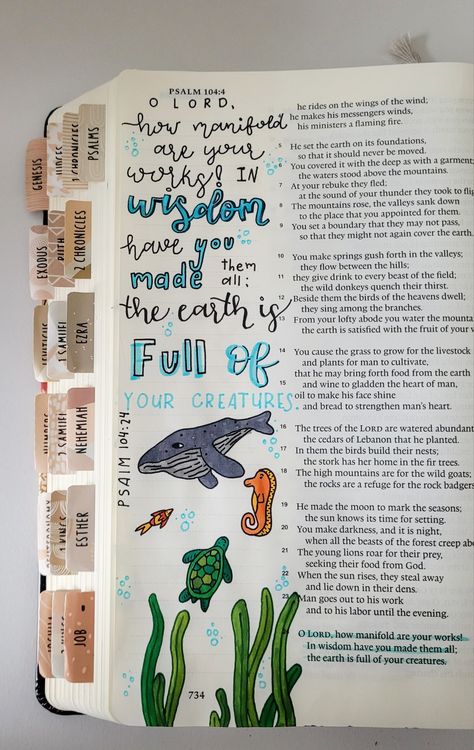 PSALM 104:4
O LORD,
how manifold
are your
works! IN
wisdom
have you
made them
all;
the earth is
Full of
YOUR CREATURES.
PSALM 104:24
he rides on the wings of the wind;
he makes his messengers winds,
his ministers a flaming fire.
5 He set the earth on its foundations,
so that it should never be moved.
6 You covered it with the deep as with a garment
the waters stood above the mountains.
7 At your rebuke they fled;
at the sound of your thunder they took to
8 The mountains rose, the valleys sank down
to the place that you appointed for them.
9 You set a boundary that they may not pass,
so that they might not again cover the earth.
10 You make springs gush forth in the valleys;
they flow between the hills;
11 they give drink to every beast of the field;
the wild donkeys quench their thirst.
12 Beside them the birds of the heavens dwell;
they sing among the branches.
13 From your lofty abode you water the
the earth is satisfied with the fruit of your
14 You cause the grass to grow for the livestock
and plants for man to cultivate,
that he may bring forth food from the earth
15 and wine to gladden the heart of man,
oil to make his face shine
and bread to strengthen man's heart.
16 The trees of the LORD are watered
the cedars of Lebanon that he planted.
17 In them the birds build their nests;
the stork has her home in the fir trees.
18 The high mountains are for the wild goats;
the rocks are a refuge for the rock badgers
19 He made the moon to mark the seasons;
the sun knows its time for setting.
20 You make darkness, and it is night,
when all the beasts of the forest creep
21 The young lions roar for their prey,
seeking their food from God.
22 When the sun rises, they steal away
and lie down in their dens.
23 Man goes out to his work
and to his labor until the evening.
O LORD, how manifold are your works!
In wisdom have you made them all;
the earth is full of your creatures.
734
GENESIS
JUDGES
1 CHRONICLES
PSALMS
EXODUS
RUTH
2 CHRONICLES
LEVITICUS
1 SAMUEL
EZRA
NUMBERS
2 SAMUEL
NEHEMIAH
DEUTERONOMY
1 KINGS
ESTHER
JOSHUA
2 KINGS
JOB